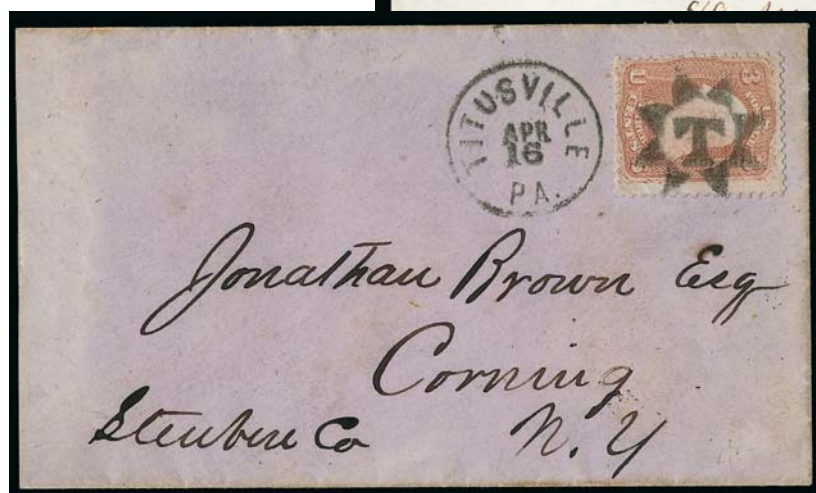 TITUSVILLE
APR
16
PA.
3 U
CENTS
T
Jonathan Brown Esq
Corning
Steuben Co N. Y